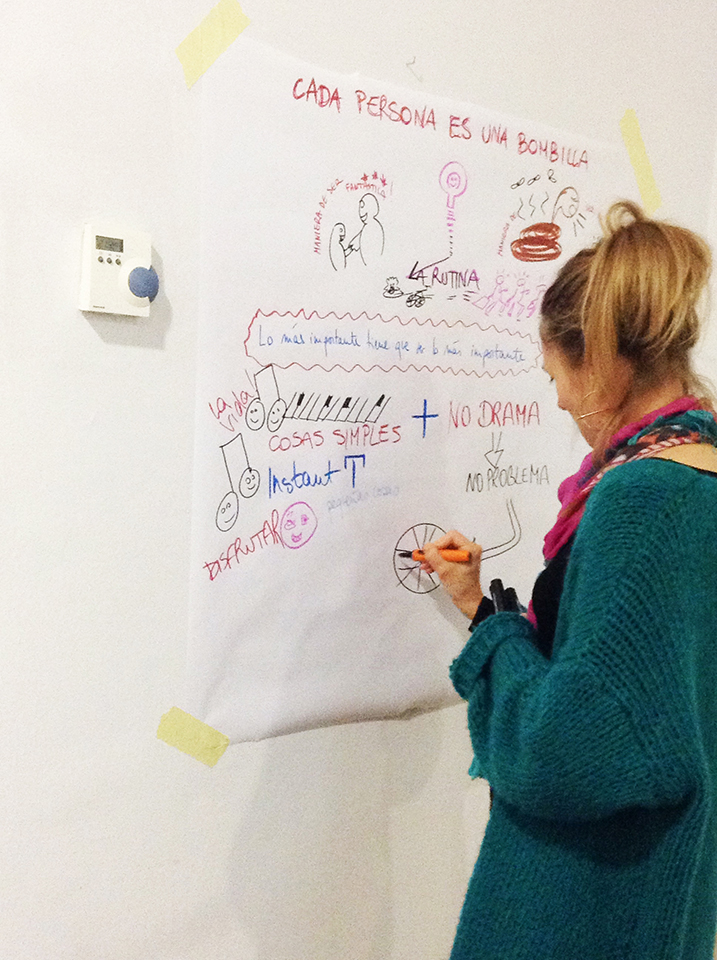 CADA PERSONA ES UNA BOMBILLA
MANIERA DE SER
FANTASTICA!
MANIERA DE
LA RUTINA
Lo más importante tiene que ser lo más importante
La Vida!
COSAS SIMPLES + NO DRAMA
Instant T
pequeñas cosas
NO PROBLEMA
DISFRUTAR